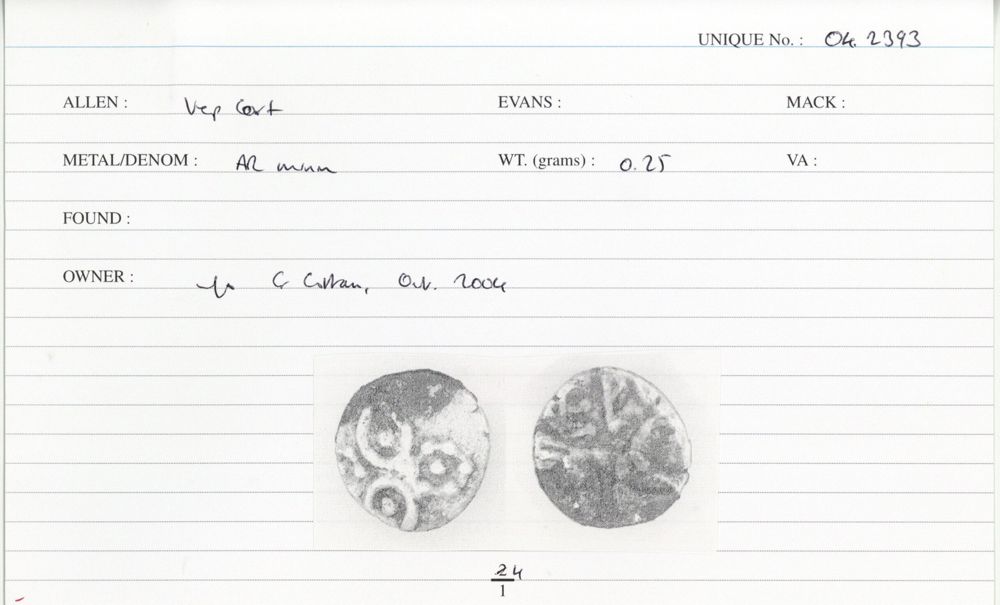 UNIQUE No. : 04. 2393
ALLEN : Vep Cort EVANS : MACK :
METAL/DENOM : AR minim WT. (grams) : 0.25 VA :
FOUND :
OWNER : G Cottam, Oct. 2004
24
1